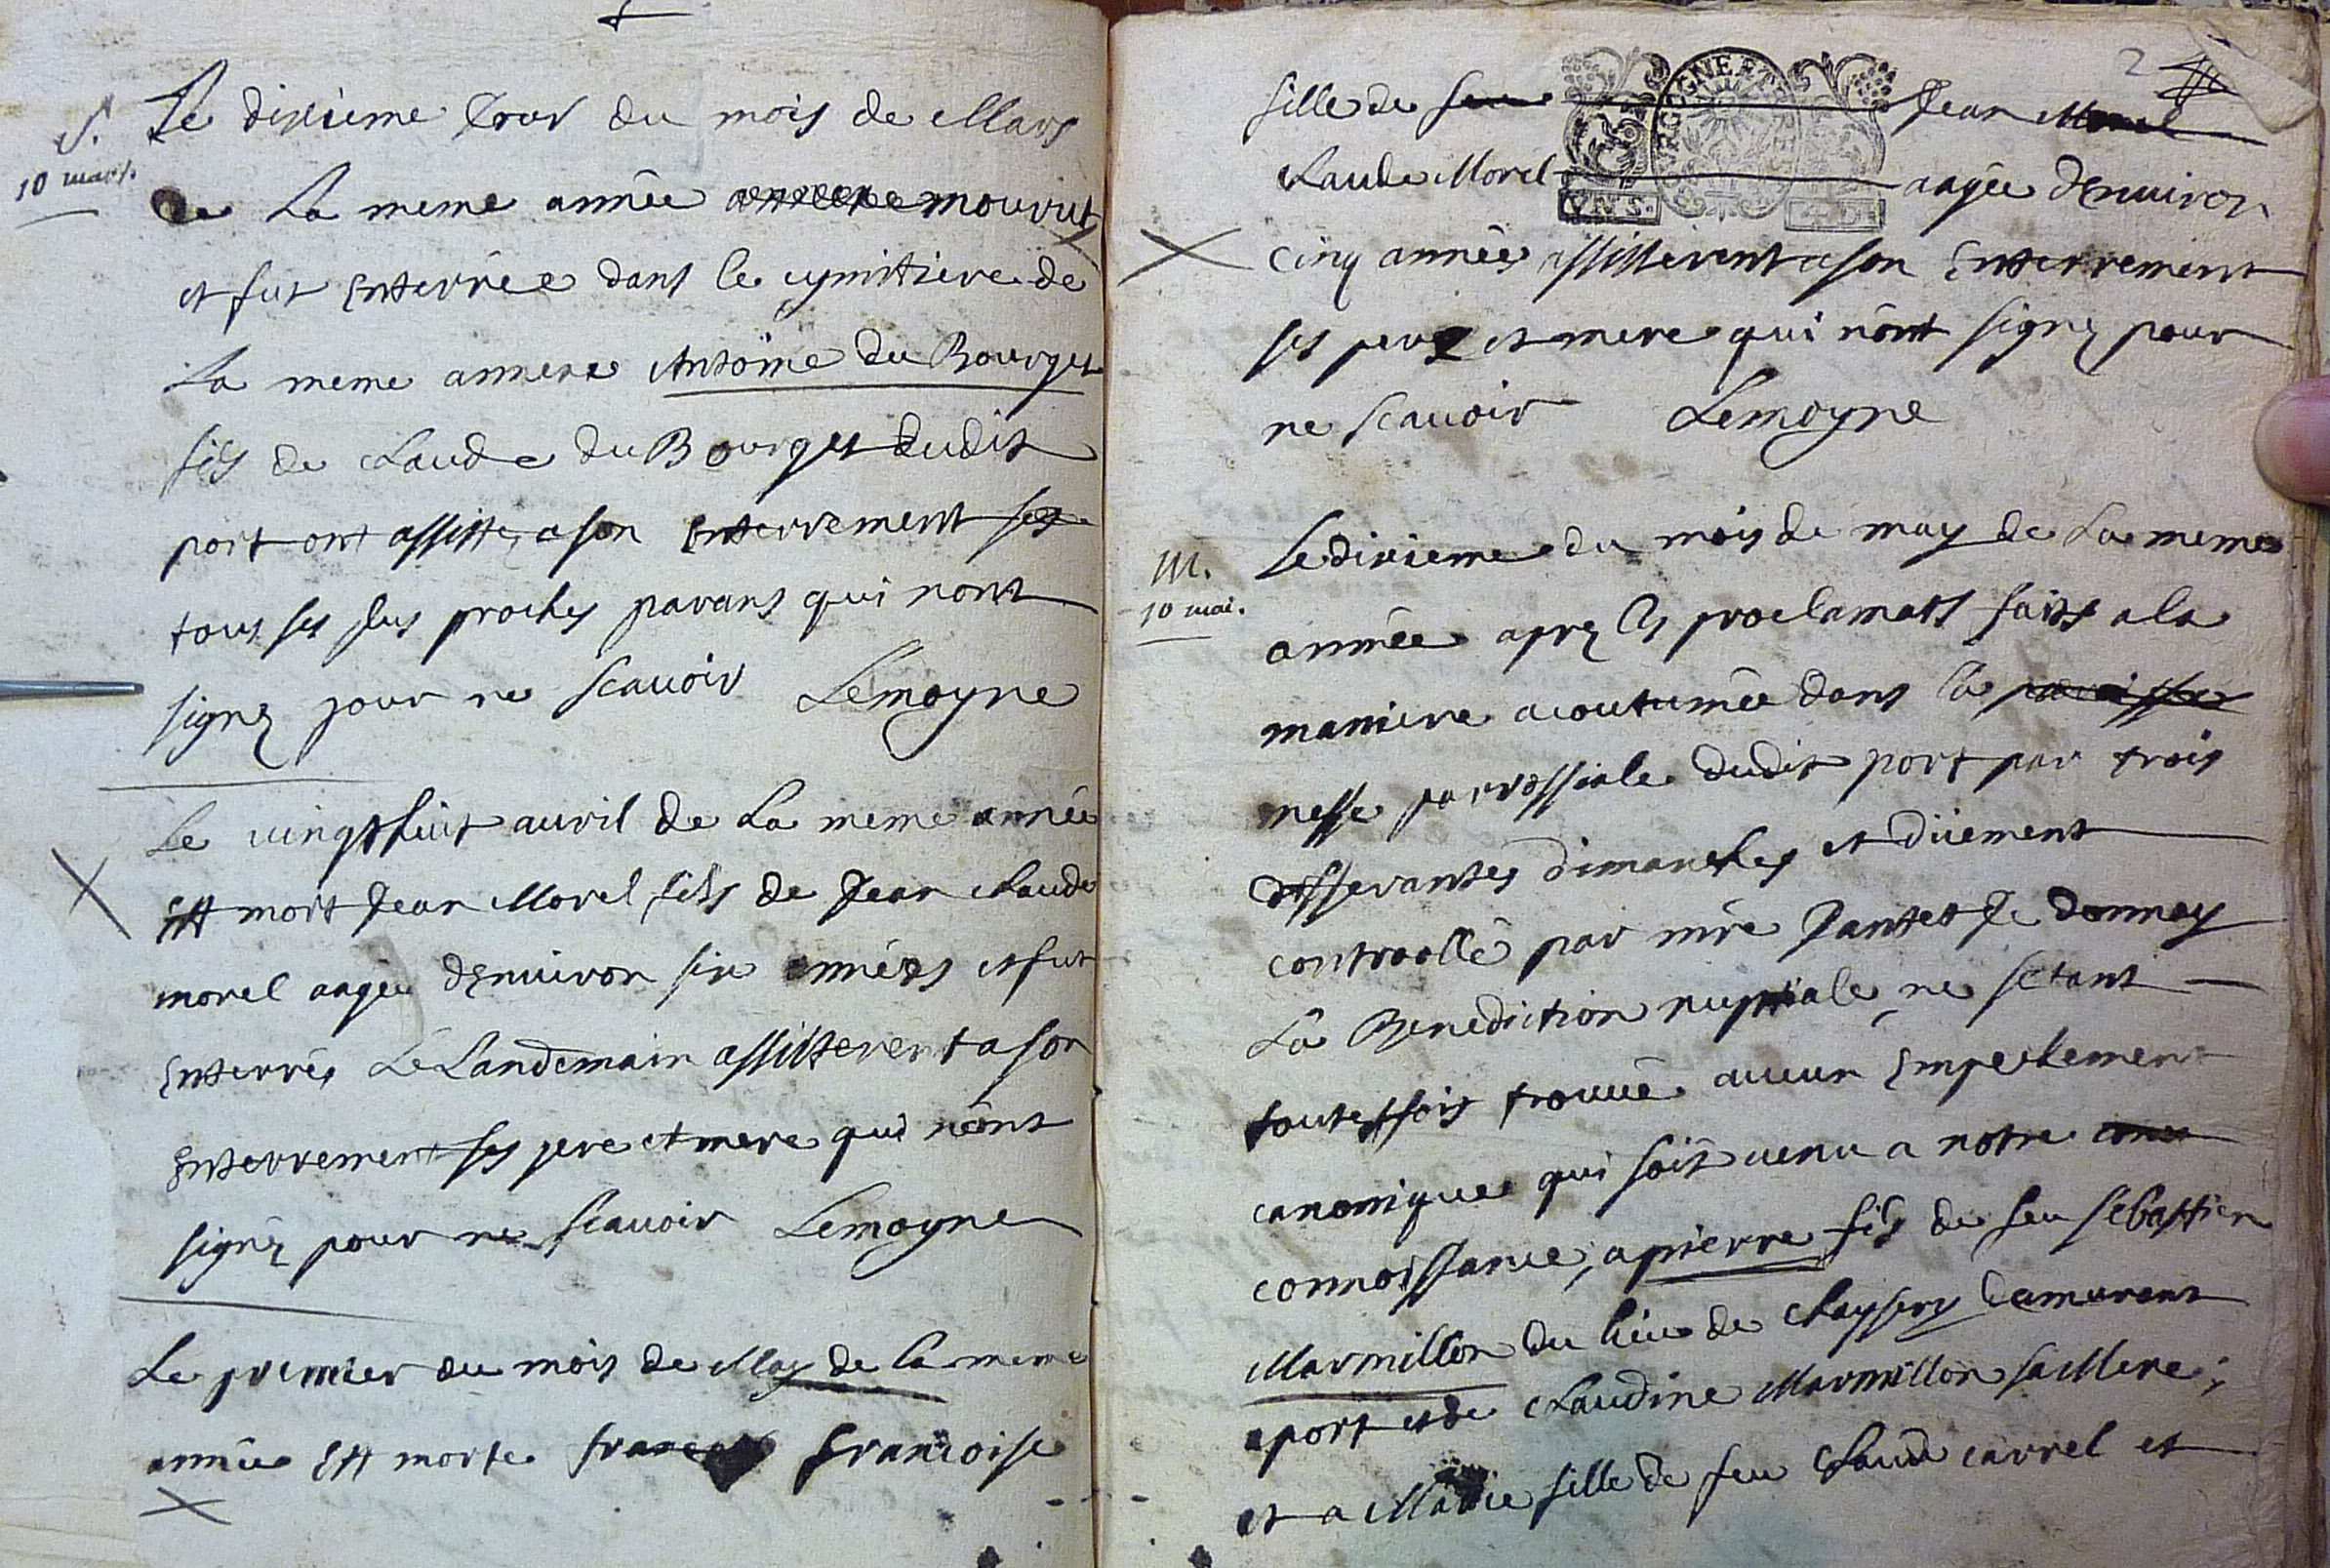 S.
10 mars.
Le dixieme Jour du mois de Mars
de La meme année mourut
et fut Enterrée dans le cymitiere de
La meme anneee Antoine du Bourget
fils de Claude du Bourget dudit
port ont assisté a son Enterrement
tous ses plus proches parans qui nont
signez pour ne scauoir Lemoyne
Le uingthuit auril de La meme année
Est mort Jean Morel fils de Jean Claude
morel aagée dEnuiron six années et fut
Enterrés Le Landemain assisterent a son
Enterrement ses pere et mere qui nont
signéz pour ne scauoir Lemoyne
Le premier du mois de May de la meme
année Est morte francois francoise
2
fille de feu Jean Morel
Claude Morel aagée dEnuiron
cinq années assisterent a son Enterrement
ses pere et mere qui nont signez pour
ne scauoir Lemoyne
M.
10 mai.
Le dixieme du mois de may de La meme
année aprez les proclamats faits a la
maniere acoutumée dans la paroisse
messe parrossiale dudit port par trois
differantes dimanches et düement
controollé par mre Jantet Je donnay
La Benediction nuptiale ne setant
touteffois trouué aucun Empechement
canonique qui soit uenu a notre
connoissance, a pierre fils de feu sebastien
Marmillon du lieu de Chaysery demurant
a port et de Claudine Marmillon sa Mere;
et a Marie fille de feu Claude carrel et